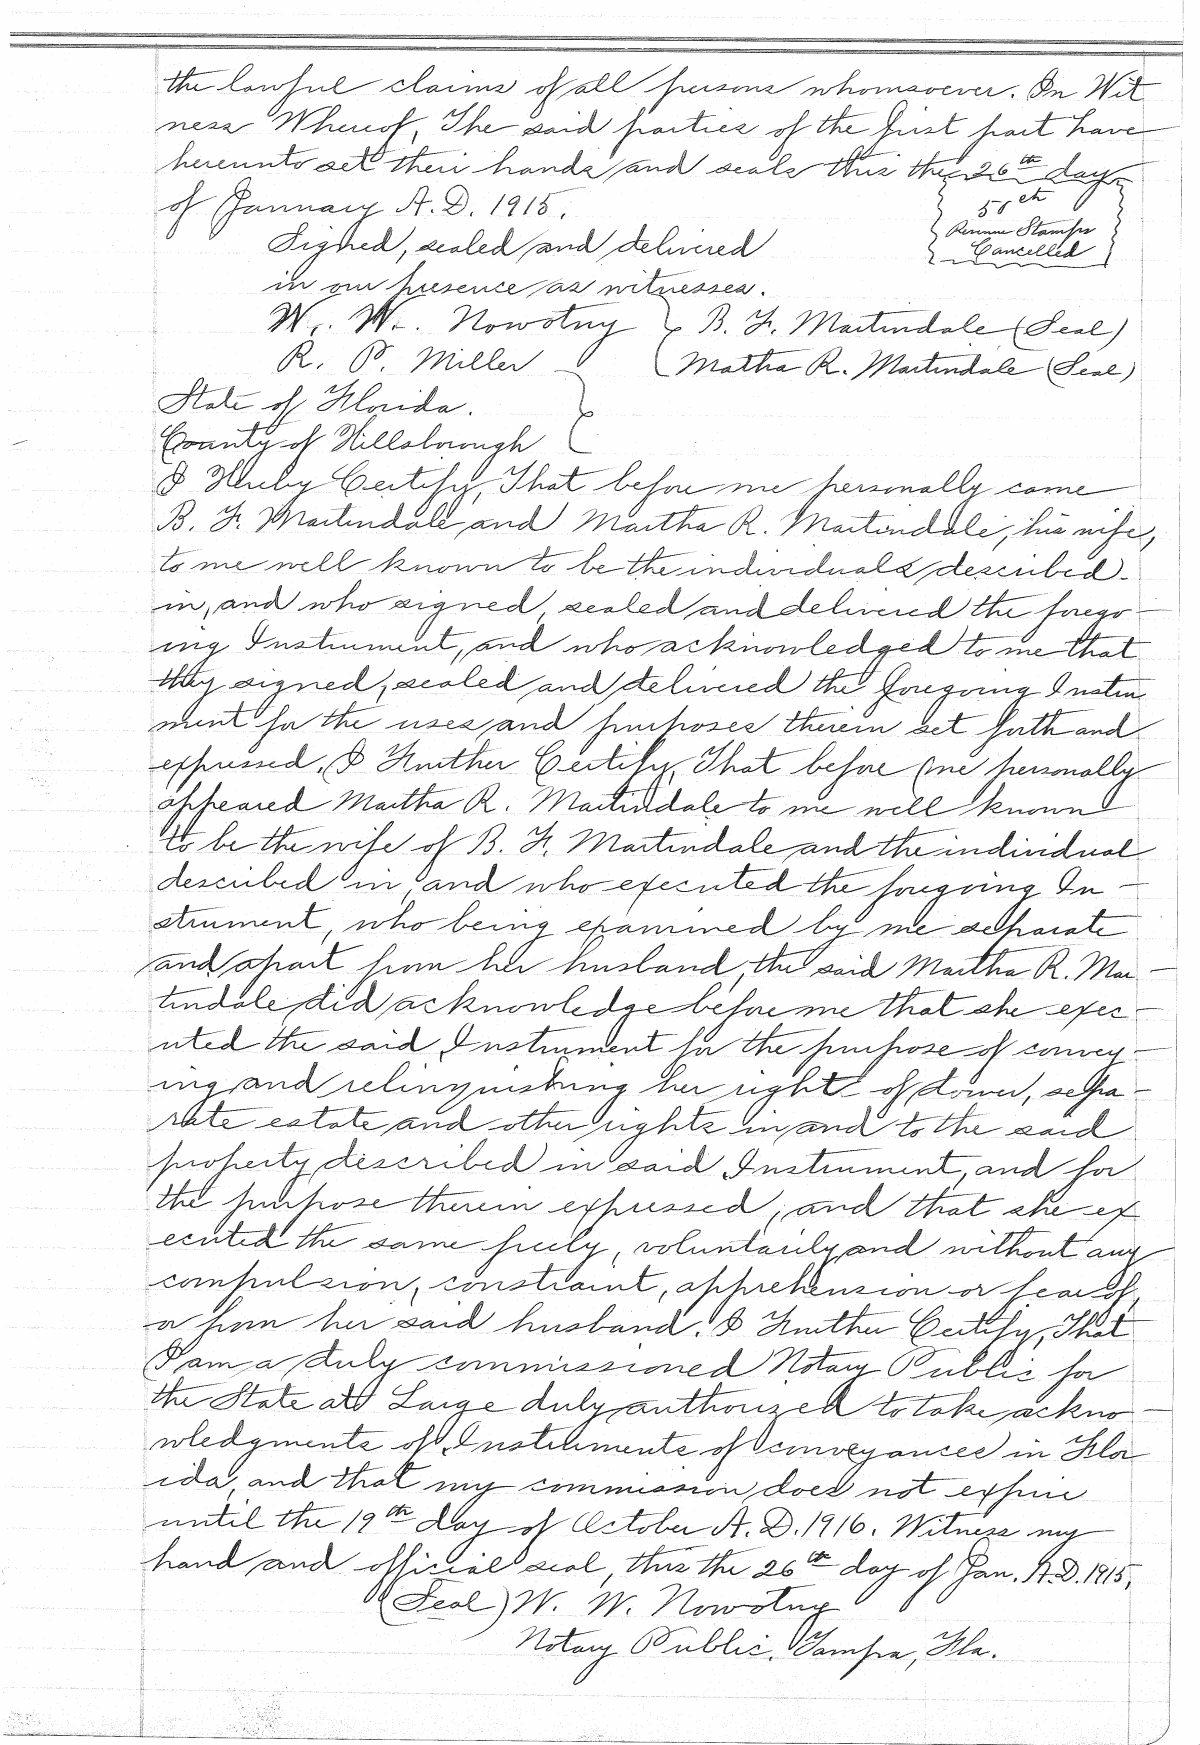 the lawful claims of all persons whomsoever. In Wit
ness Whereof, The said parties of the first part have
hereunto set their hands and seals this the 26th day
of January A.D. 1915.
50 cts
Revenue Stamps
Cancelled
Signed, sealed and delivered
in our presence as witnesses.
W. W. Nowotny B. F. Martindale (Seal)
R. P. Miller Martha R. Martindale (Seal)
State of Florida.
County of Hillsborough
I Hereby Certify, That before me personally came
B. F. Martindale and Martha R. Martindale, his wife,
to me well known to be the individuals described
in, and who signed, sealed and delivered the forego-
ing Instrument, and who acknowledged to me that
they signed, sealed and delivered the foregoing Instru
ment for the uses and purposes therein set forth and
expressed. I Further Certify, That before me personally
appeared Martha R. Martindale to me well known
to be the wife of B. F. Martindale and the individual
described in, and who executed the foregoing In-
strument, who being examined by me separate
and apart from her husband, the said Martha R. Mar-
tindale did acknowledge before me that she exec-
uted the said Instrument for the purpose of convey-
ing and relinquishing her right of dower, sepa-
rate estate and other rights in and to the said
property described in said Instrument, and for
the purpose therein expressed, and that she ex
ecuted the same freely, voluntarily and without any
compulsion, constraint, apprehension or fear of,
or from her said husband. I Further Certify, That
I am a duly commissioned Notary Public for
the State at Large duly authorized to take ackno-
wledgments of Instruments of conveyances in Flor
ida, and that my commission does not expire
until the 19th day of October A.D. 1916. Witness my
hand and official seal, this the 26th day of Jan. A.D. 1915.
(Seal) W. W. Nowotny
Notary Public. Tampa, Fla.